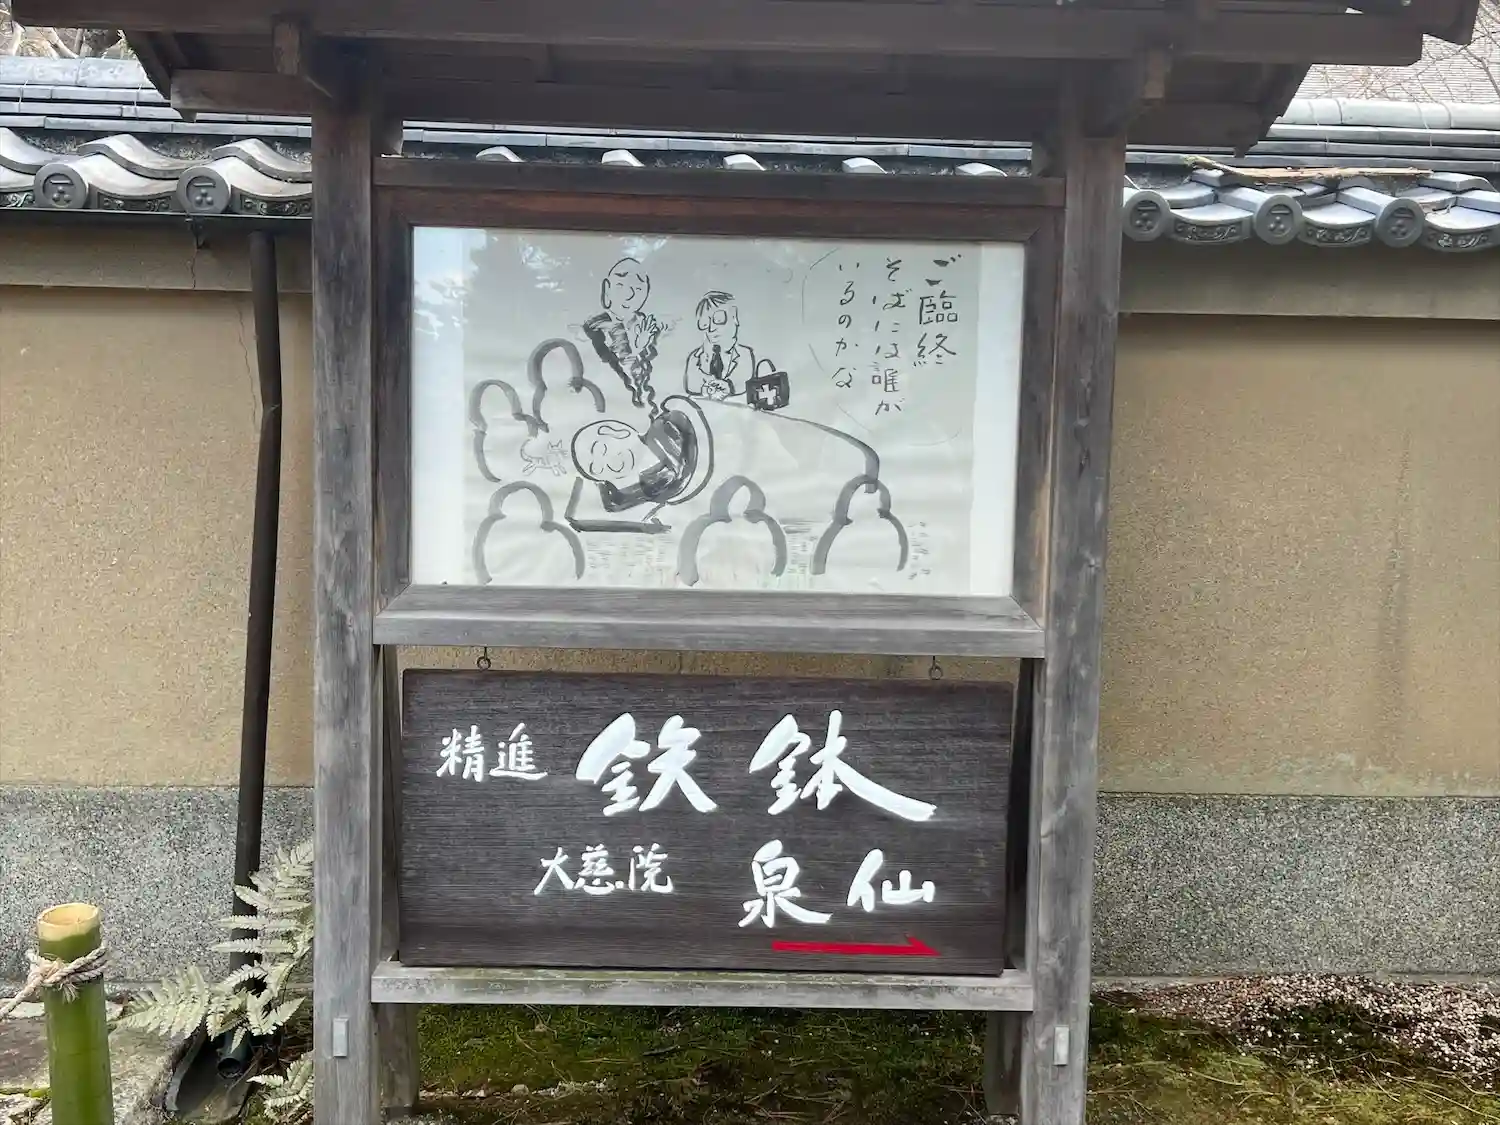 ご臨終
そばには誰が
いるのかな
精進 鉄鉢
大慈院 泉仙